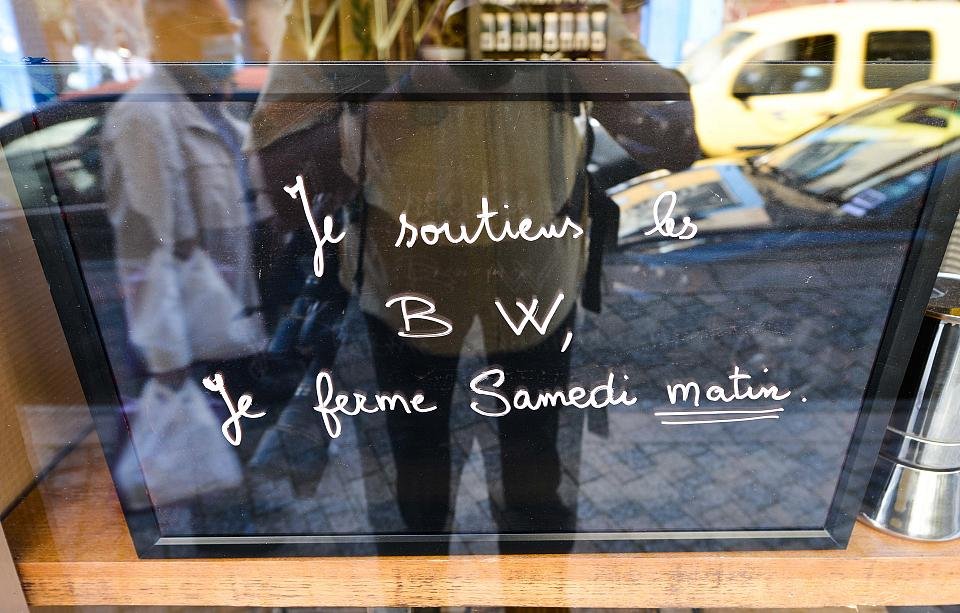 Je soutiens les
B W,
Je ferme Samedi matin.